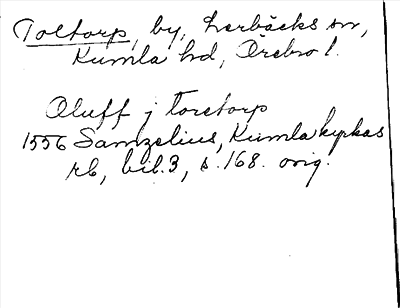 Toltorp, by, Lerbäcks sn,
Kumla hd, Örebro l.
Oluff j Toretorp
1556 Samzelius, Kumla kyrkas
rb, bil. 3, s. 168. orig.